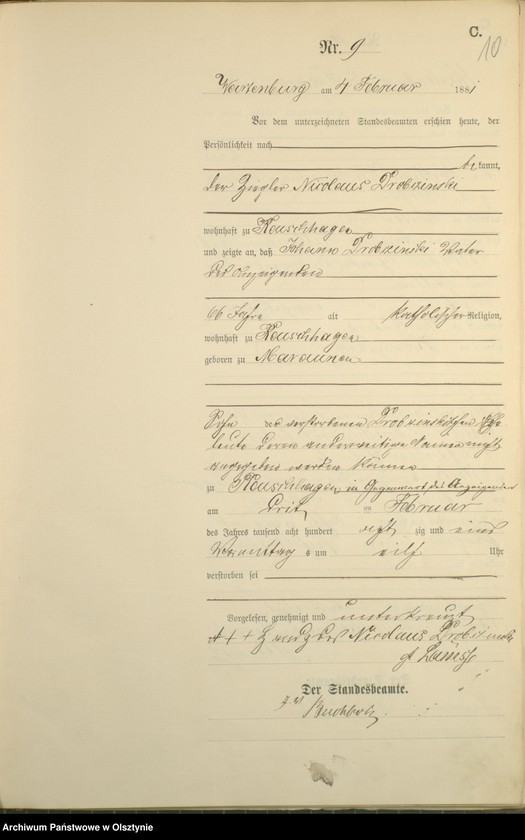 C.
10
Nr. 9
Wartenburg am 4 Februar 1881
Vor dem unterzeichneten Standesbeamten erschien heute, der
Persönlichkeit nach
be kannt,
der Ziegler Nicolaus Drobzinski
wohnhaft zu Reuschhagen
und zeigte an, daß Johann Drobzinski Vater
des Anzeigenden
66 Jahre alt katholischer Religion,
wohnhaft zu Reuschhagen
geboren zu Maraunen
Sohn der verstorbenen Drobzinskischen Ehe-
leute deren anderweitige Namen nicht
angegeben werden können
zu Reuschhagen, in Gegenwart des Anzeigenden
am Februar
des Jahres tausend acht hundert acht zig und eins
Vormittags um eilf Uhr
verstorben sei
Vorgelesen, genehmigt und unterkreuzt
+++ Handz des Nicolaus Drobzinski
Der Standesbeamte.
Archiwum Państwowe w Olsztynie